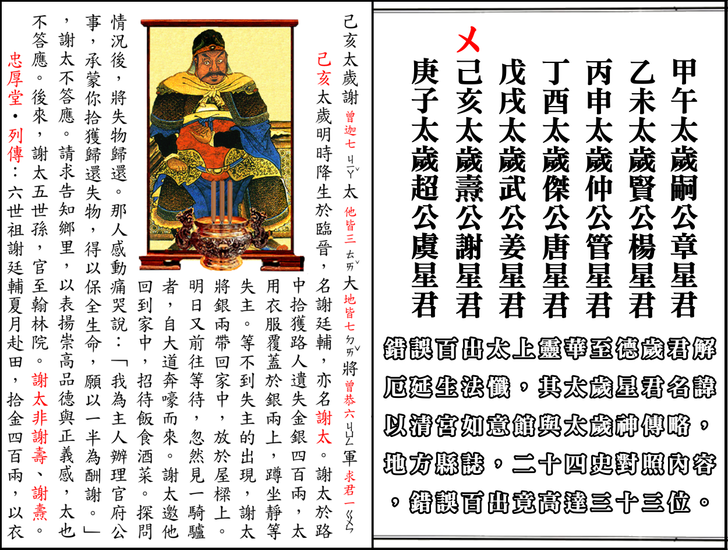 甲午太歲嗣公章星君
乙未太歲賢公楊星君
丙申太歲仲公管星君
丁酉太歲傑公唐星君
戊戌太歲武公姜星君
己亥太歲燾公謝星君
庚子太歲超公虞星君
錯誤百出太上靈華至德歲君解
厄延生法懺，其太歲星君名諱
以清宮如意館與太歲神傳略，
地方縣誌，二十四史對照內容
，錯誤百出竟高達三十三位。
己亥太歲謝曾迦七ㄐㄧㄚˇ太他皆三ㄊㄞˇ大地皆七ㄉㄞˇ將曾恭六軍求君一
己亥太歲明時降生於臨晉，名謝廷輔，亦名謝太。謝太於路
中拾獲路人遺失金銀四百兩，太
用衣服覆蓋於銀兩上，蹲坐靜等
失主。等不到失主的出現，謝太
將銀兩帶回家中，放於屋樑上。
明日又前往等待，忽然見一騎驢
者，自大道奔嚎而來。謝太邀他
回到家中，招待飯食酒菜。探問
情況後，將失物歸還。那人感動痛哭說：「我為主人辦理官府公
事，承蒙你拾獲歸還失物，得以保全生命，願以一半為酬謝。」
，謝太不答應。請求告知鄉里，以表揚崇高品德與正義感，太也
不答應。後來，謝太五世孫，官至翰林院。謝太非謝壽、謝燾。
忠厚堂·列傳：六世祖謝廷輔夏月赴田，拾金四百兩，以衣